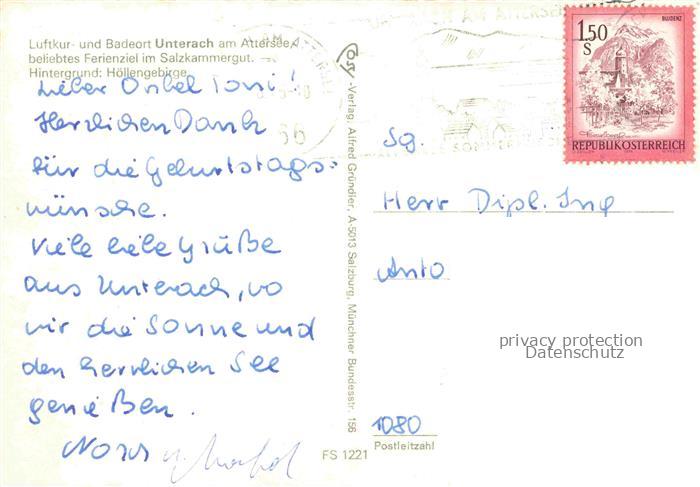 Luftkur- und Badeort Unterach am Attersee,
beliebtes Ferienziel im Salzkammergut.
Hintergrund: Höllengebirge
Lieber Onkel Toni!
Herzlichen Dank
für die Geburtstags-
wünsche.
Viele liebe Grüße
aus Unterach, wo
wir die Sonne und
den herrlichen See
genießen.
Cosy-Verlag, Alfred Gründler, A-5013 Salzburg, Münchner Bundesstr. 156
FS 1221
BLUDENZ
1.50
S
REPUBLIK ÖSTERREICH
Sg.
Herr Dipl. Ing
Anto
privacy protection
Datenschutz
1080
Postleitzahl